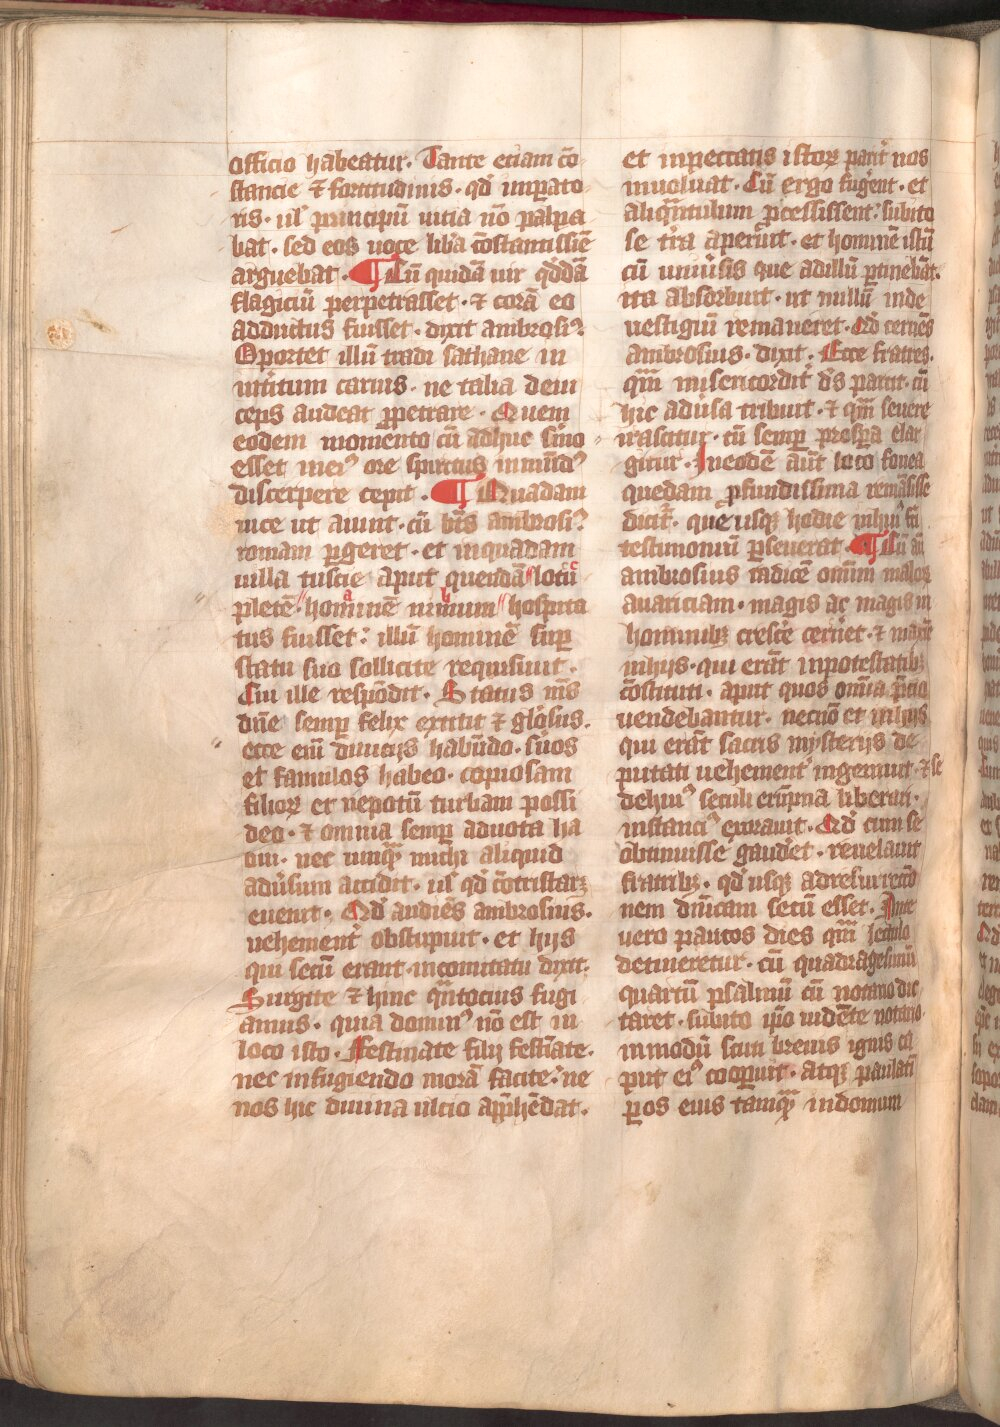 officio habeatur. Tante etiam cō-
stancie ⁊ fortitudinis. qd̓ imperato-
ris. ul̓ principū uitia nō palpa
bat. sed eos uoce liba c̄ostantissīe
arguebat. ¶ Cū quidā uir qd̓dā
flagiciū perpetrasset. ⁊ corā eo
adductus fuisset. dixit ambrosiꝰ.
Oportet illū tradi sathane in
int̓itum carnis. ne talia dein
ceps audeat ꝑpetrare. Quem
eodem momento cū adhuc s̓mo
esset in eiꝰ ore spiritus inmūdꝰ
discerpere cepit. ¶ Quadam
uice ut aiunt. cū bt̄s ambrosiꝰ
romam ꝑgeret. et inquadam
uilla tuscie aput quendā locū
pletē. hominē nimium hospita
tus fuisset: illū hominē suꝑ
statu suo sollicite requisiuit.
Cui ille respōdit. Status m̄s
dn̄e semꝑ felix extitit ⁊ gl̓osus.
ecce em̄ diuicijs habūdo. s̓uos
et famulos habeo. copiosam
filioꝝ et nepotū turbam possi
deo. ⁊ omnia semꝑ aduota ha
bui. nec unqȝ̄ michi aliquid
adu̓sum accidit. ul̓ qd̓ c̄otristaꝝ
euenit. Qd̓ audiēs ambrosius.
uehement̓ obstupuit. et hijs
qui secū erant. incomitatu dixit.
Surgite ⁊ hinc qn̄tocius fugi
amus. quia dominꝰ nō est in
loco isto. Festinate filij festīate.
nec infugiendo morā facite: ne
nos hic diuina ulcio app̓hēdat.
et inpeccatis istoꝝ parit̓ nos
inuoluat. Cū ergo fug̓ent. et
aliqn̄tulum ꝓcessissent: subito
se t̓ra aperuit. et hominē istū
cū uniu̓sis que adillū ꝑtinebāt.
ita absorbuit. ut nullū inde
uestigiū remaneret. Qd̓ cernēs
ambrosius. dixit. Ecce fratres.
qm̄ misericordit̓ d̄s parcit. cū
hic adu̓sa tribuit. ⁊ qm̄ seuere
irascitur. cū semꝑ prospa elar
gitur. Ineodē aūt loco fouea
quedam ꝓfundissima remāsisse
dicit̓. que usqȝ hodie inhuiꝰ f̄i
testimoniū ꝑseuerat. ¶ Cū aū
ambrosius radicē omium maloꝝ
auariciam. magis ac magis in
hominibȝ cresc̓e cern̓et. ⁊ maxīe
inhijs. qui erāt inpotestatibȝ
c̄ostituti. aput quos om̄ia p̓cio
uendebantur. necnō et inhijs
qui erāt sacris mysterijs de-
putati uehement̓ ingemuit. ⁊ se
dehuiꝰ seculi erūpna liberari.
instanciꝰ exorauit. Qd̓ cum se
obtinuisse gaud̓et. reuelauit
fratribȝ. qd̓ usqȝ adresurrecc̄o
nem dn̄icam secū esset. Ante
uero paucos dies qm̄ lectulo
detineretur. cū quadragesimū
quartū psalmū cū notario dic
taret. subito ip̄o uidēte notario.
inmodū scuti breuis ignis ca
put eiꝰ cooꝑuit. atqȝ paulatī
ꝑ os eius tamqȝ̄ indomum